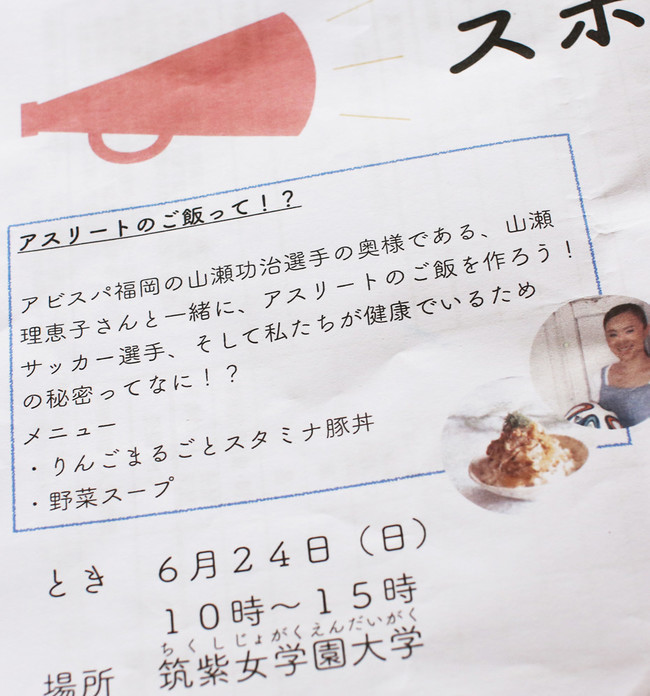 スポ
アスリートのご飯って！？
アビスパ福岡の山瀬功治選手の奥様である、山瀬
理恵子さんと一緒に、アスリートのご飯を作ろう！
サッカー選手、そして私たちが健康でいるため
の秘密ってなに！？
メニュー
・りんごまるごとスタミナ豚丼
・野菜スープ
とき　６月２４日（日）
１０時～１５時
ちくしじょがくえんだいがく
場所　筑紫女学園大学